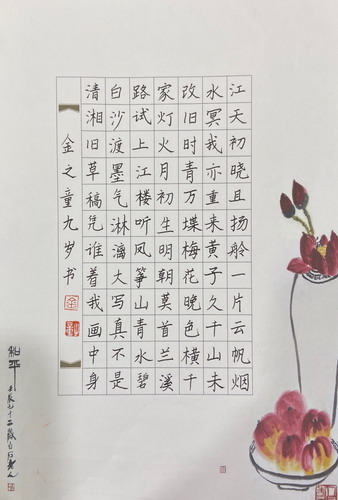 江天初晓且扬舲一片云帆烟
水冥我亦重来黄子久千山未
改旧时青万堞梅花晚色横千
家灯火月初生明朝莫首兰溪
路试上江楼听凤筝山青水碧
白沙渡墨气淋漓大写真不是
清湘旧草稿凭谁着我画中身
金之童九岁书
和平